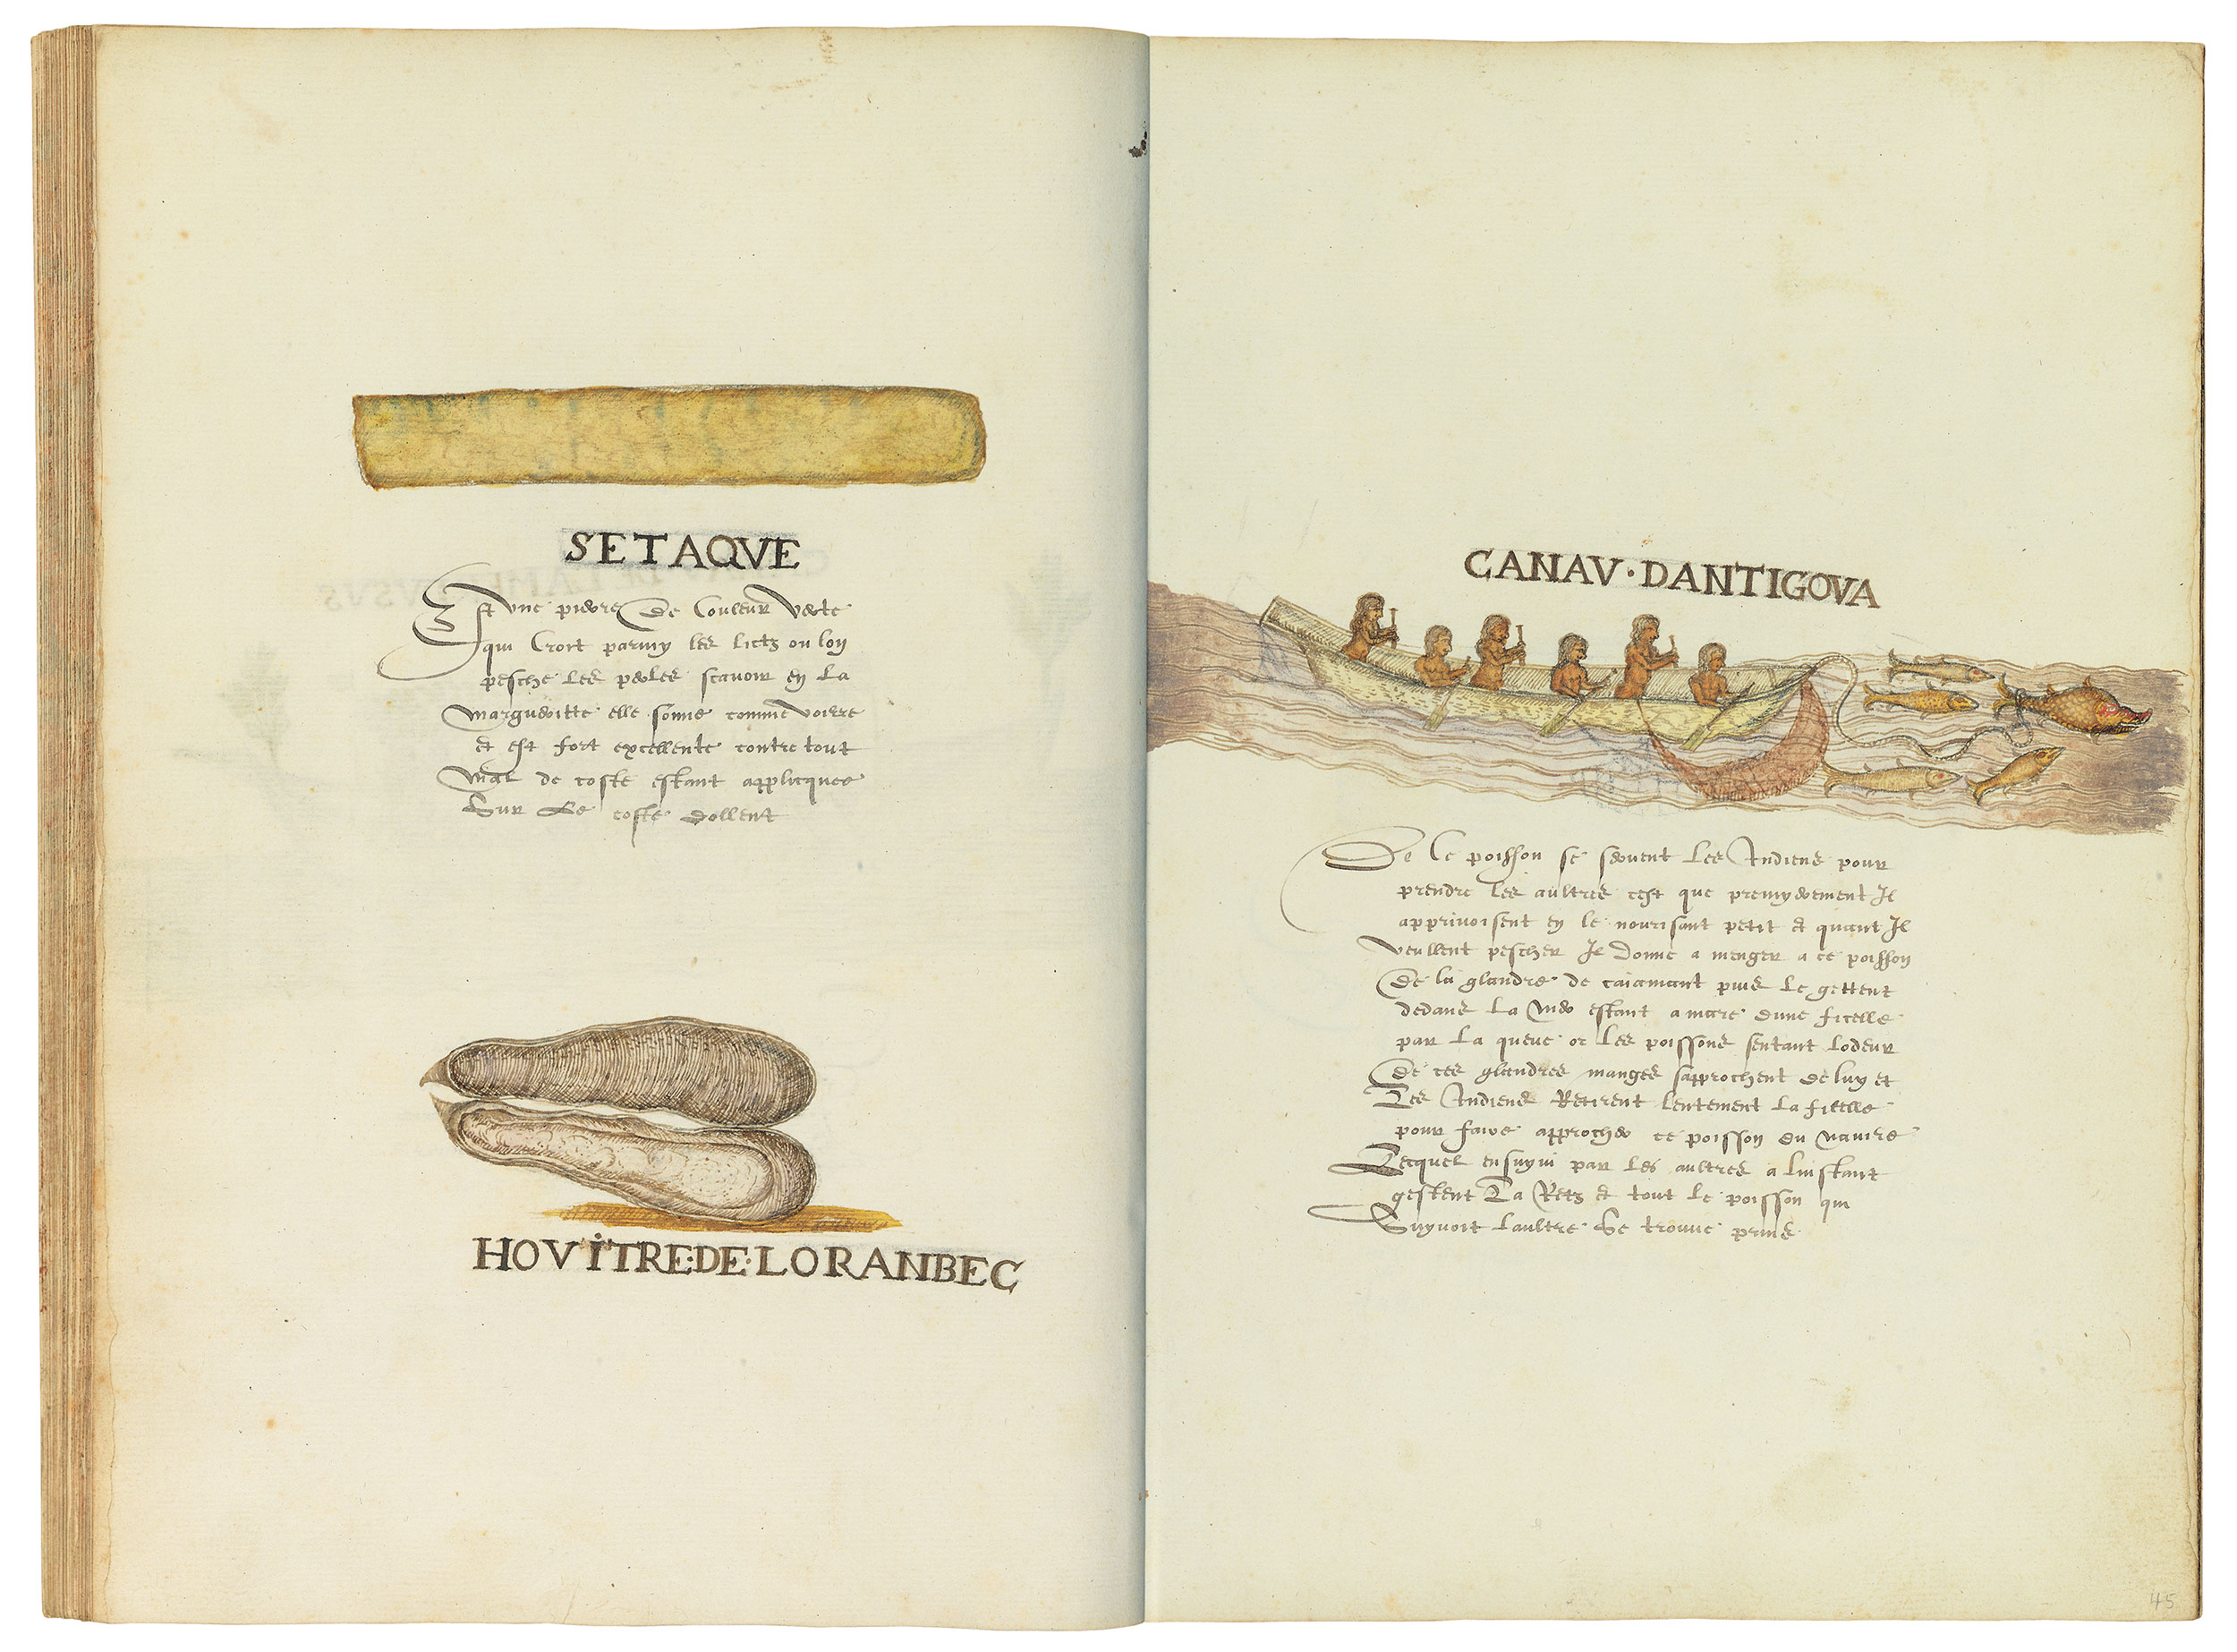 SETAQVE
Est vne pierre de Couleur verte
qui Croit parmy les lictz ou lon
pesche les perles scauoir en la
margueritte elle sonne comme voirre
et est fort excellente contre tout
mal de coste estant applicquee
Sur Le coste dollent
HOVITRE·DE·LORANBEC
CANAV·DANTIGOVA
De Ce poisson se seruent les Indiens pour
prendre les aultres cest que premyerement Il
apprivoisent en le nourisant petit et quant Il
veullent pescher Il donne a menger a ce poisson
De la glandre de caiamant puis le gettent
dedans La mer estant amare dune ficelle
par La queue or les poissons sentant lodeur
De ces glandres manges sapprochent de luy et
Les Indiens Retirent lentement La ficelle
pour faire approcher ce poisson du nauire
Lecquel ensuyui par les aultres a linstant
gestent La Retz et tout le poisson qui
Suyuoit laultre Se trouue prins
45